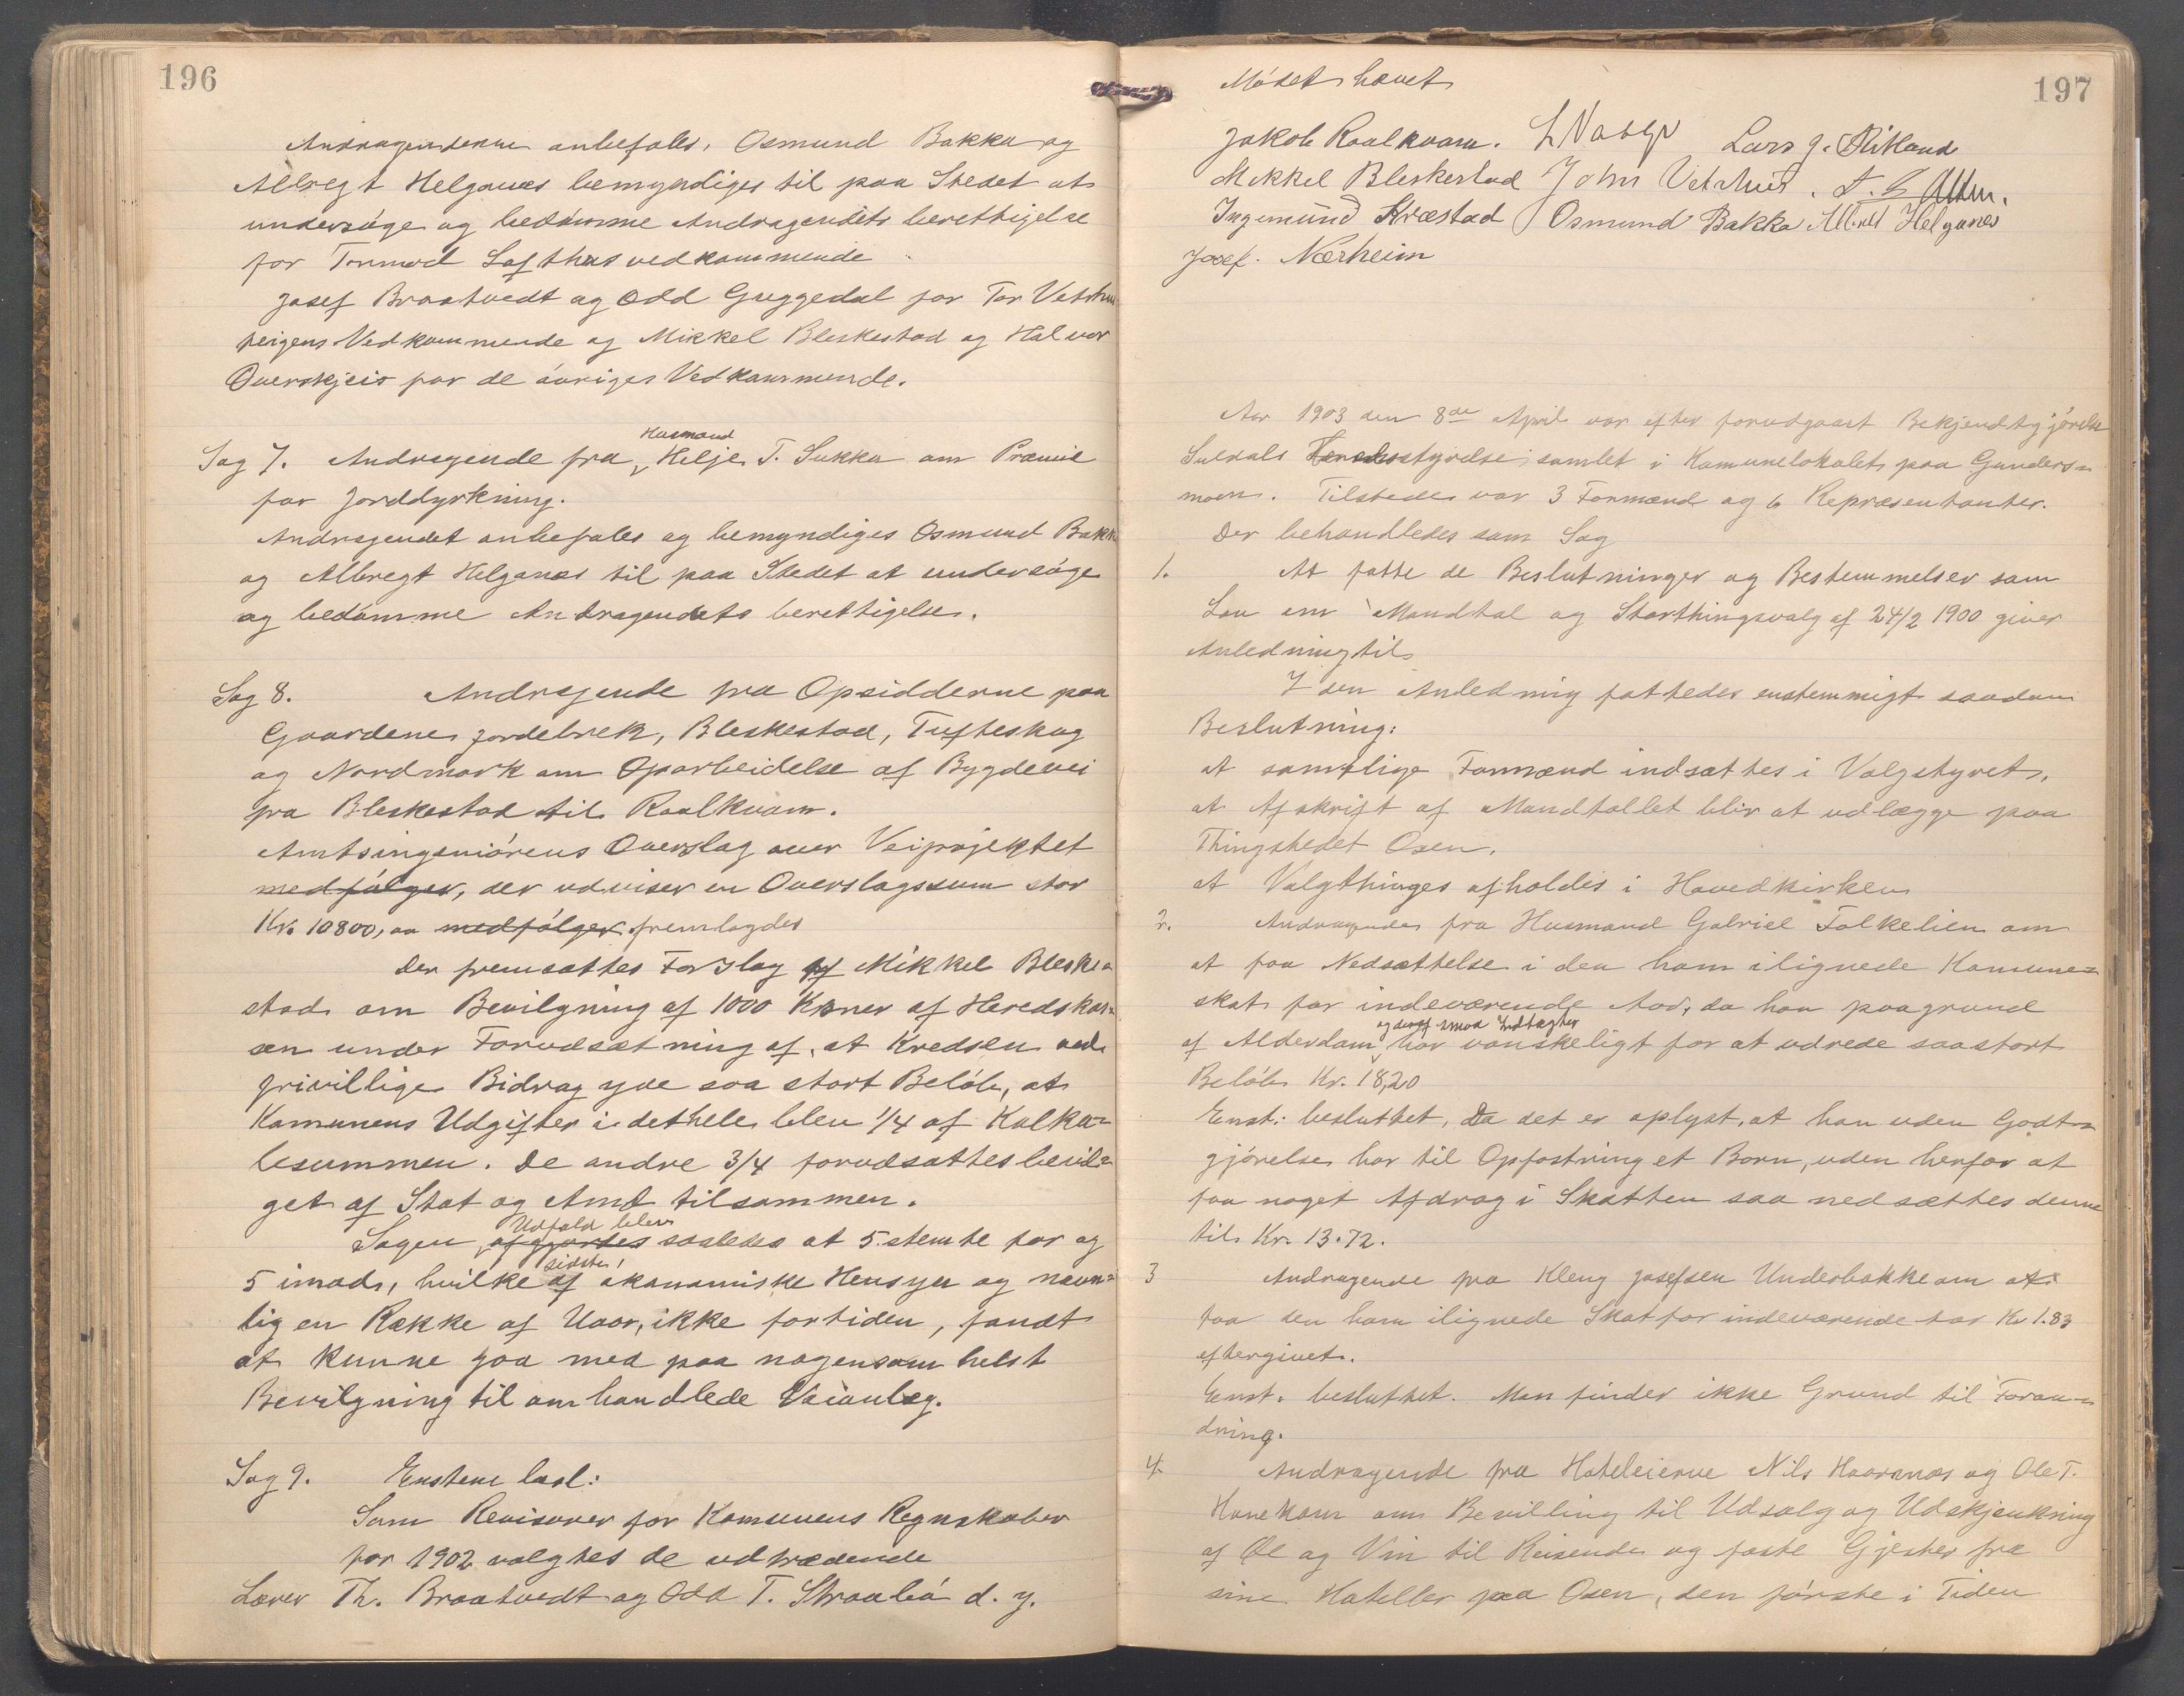 196
Andragenderne anbefales. Osmund Bakka og
Albregt Helganæs bemyndiges til paa Stedet at
undersøge og bedømme Andragendets berettigelse
for Tormod Lofthus vedkommende
Josef Braatvedt og Odd Guggedal for Tor Vetrhus
peigens Vedkommende og Mikkel Bleskestad og Halvor
Overskjeis for de øvriges Vedkommende.
Sag 7. Andragende fra Husmand Helje T. Sukka om Præmie
for Jorddyrkning.
Andragendet anbefales og bemyndiges Osmund Bakka
og Albregt Helganæs til paa Stedet at undersøge
og bedømme Andragendets berettigelse.
Sag 8. Andragende fra Opsidderne paa
Gaardene Jordebrek, Bleskestad, Tufteskog
og Nordmork om Oparbeidelse af Bygdevei
fra Bleskestad til Roalkvam.
Amtsingeniørens Overslag over Veiprojektet
medfølger, der udviser en Overslagssum stor
Kr. 10800,00 medfølger fremlagdes
Der fremsattes Forslag af Mikkel Bleske-
stad om Bevilgning af 1000 Kroner af Heredskas-
sen under Forudsætning af, at Kredsen ved
frivillige Bidrag yde saa stort Beløb, at
Komunens Udgifter i dethele blev 1/4 af Kalku-
lesummen. De andre 3/4 forudsattes bevil-
get af Stat og Amt tilsammen.
Sagen Udfald blev afgjordes saaledes at 5 stemte for og
5 imod, hvilke sidste af økonomiske Hensyn og navn-
lig en Række af Uaar, ikke fortiden, fandt
at kunne gaa med paa nogensomhelst
Bevilgning til omhandlede Veianlæg.
Sag 9. Enstem besl:
Som Revisorer for Komunens Regnskaber
for 1902 valgtes de udtrædende
Lærer Th. Braatvedt og Odd T. Straabø d. y.
197
Mødet hævet
Jakob Roalkvam. L Vasge Lars J. Fitland
Mikkel Bleskestad John Vetrhus.
Ingemund Kvæstad Osmund Bakka Albret Helganes
Josef. Nærheim
Aar 1903 den 8de April var efter forudgaaet Bekjendtgjørelse
Suldals Heredsstyrelse samlet i Komunelokalet paa Gunders-
moen. Tilstede var 3 Formænd og 6 Repræsentanter.
Der behandledes som Sag
1. At fatte de Beslutninger og Bestemmelser som
Lov om Mandtal og Storthingsvalg af 24/2 1900 giver
Anledning til
I den Anledning fattedes enstemmigt saadan
Beslutning:
at samtlige Formænd indsættes i Valgstyret,
at Afskrift af Mandtallet blir at udlægge paa
Thingstedet Osen,
at Valgthinges afholdes i Hovedkirken
2. Andragende fra Husmand Gabriel Folkelien om
at faa Nedsættelse i den ham ilignede Komune-
skat for indeværende Aar, da han paagrund
af Alderdom og deraf smaa Indtægter har vanskeligt for at udrede saastort
Beløb Kr. 18,20
Enst: besluttet, Da det er oplyst, at han uden Godt-
gjørelse har til Opfostring et Barn, uden herfor at
faa noget Afdrag i Skatten saa nedsættes denne
til Kr. 13.72.
3 Andragende fra Kleng Josefsen Underbakke om at
faa den ham ilignede Skat for indeværende Aar Kr 1.83
eftergivet.
Enst. besluttet. Man finder ikke Grund til Foran-
dring.
4. Andragende fra Hoteleierne Nils Haaranæs og Ole T.
Hanekam om Bevilling til Udsalg og Udskjenkning
af Øl og Vin til Reisende og faste Gjester fra
sine Hoteller paa Osen, den første i Tiden